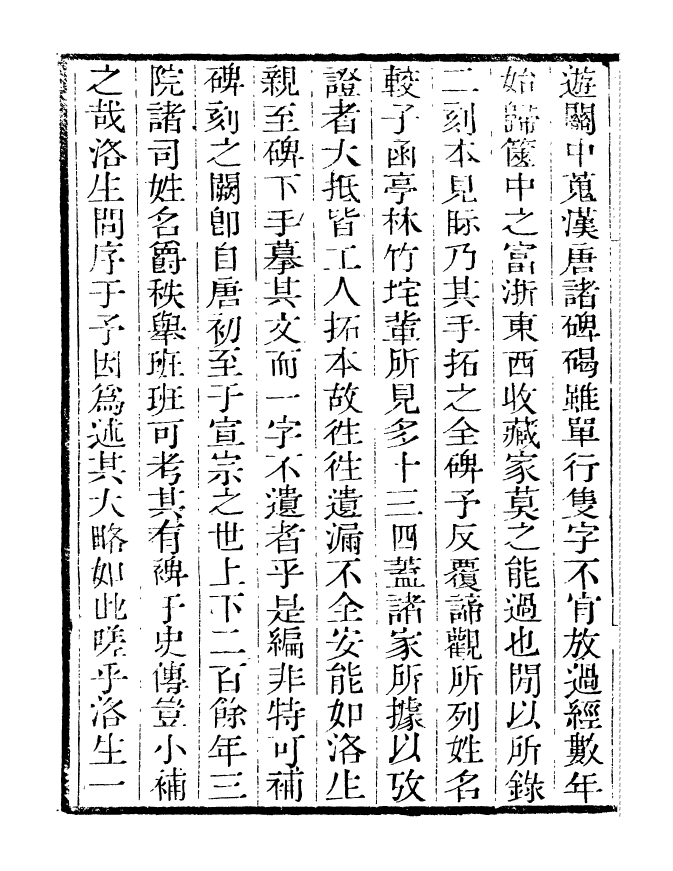 遊關中蒐漢唐諸碑碣雖單行隻字不肎放過經數年
始歸篋中之富浙東西收藏家莫之能過也閒以所錄
二刻本見眎乃其手拓之全碑予反覆諦觀所列姓名
較子函亭林竹垞輩所見多十三四蓋諸家所據以攷
證者大抵皆工人拓本故往往遺漏不全安能如洛生
親至碑下手摹其文而一字不遺者乎是編非特可補
碑刻之闕卽自唐初至于宣宗之世上下二百餘年三
院諸司姓名爵秩舉班班可考其有裨于史傳豈小補
之哉洛生問序于予因爲述其大略如此嗟乎洛生一